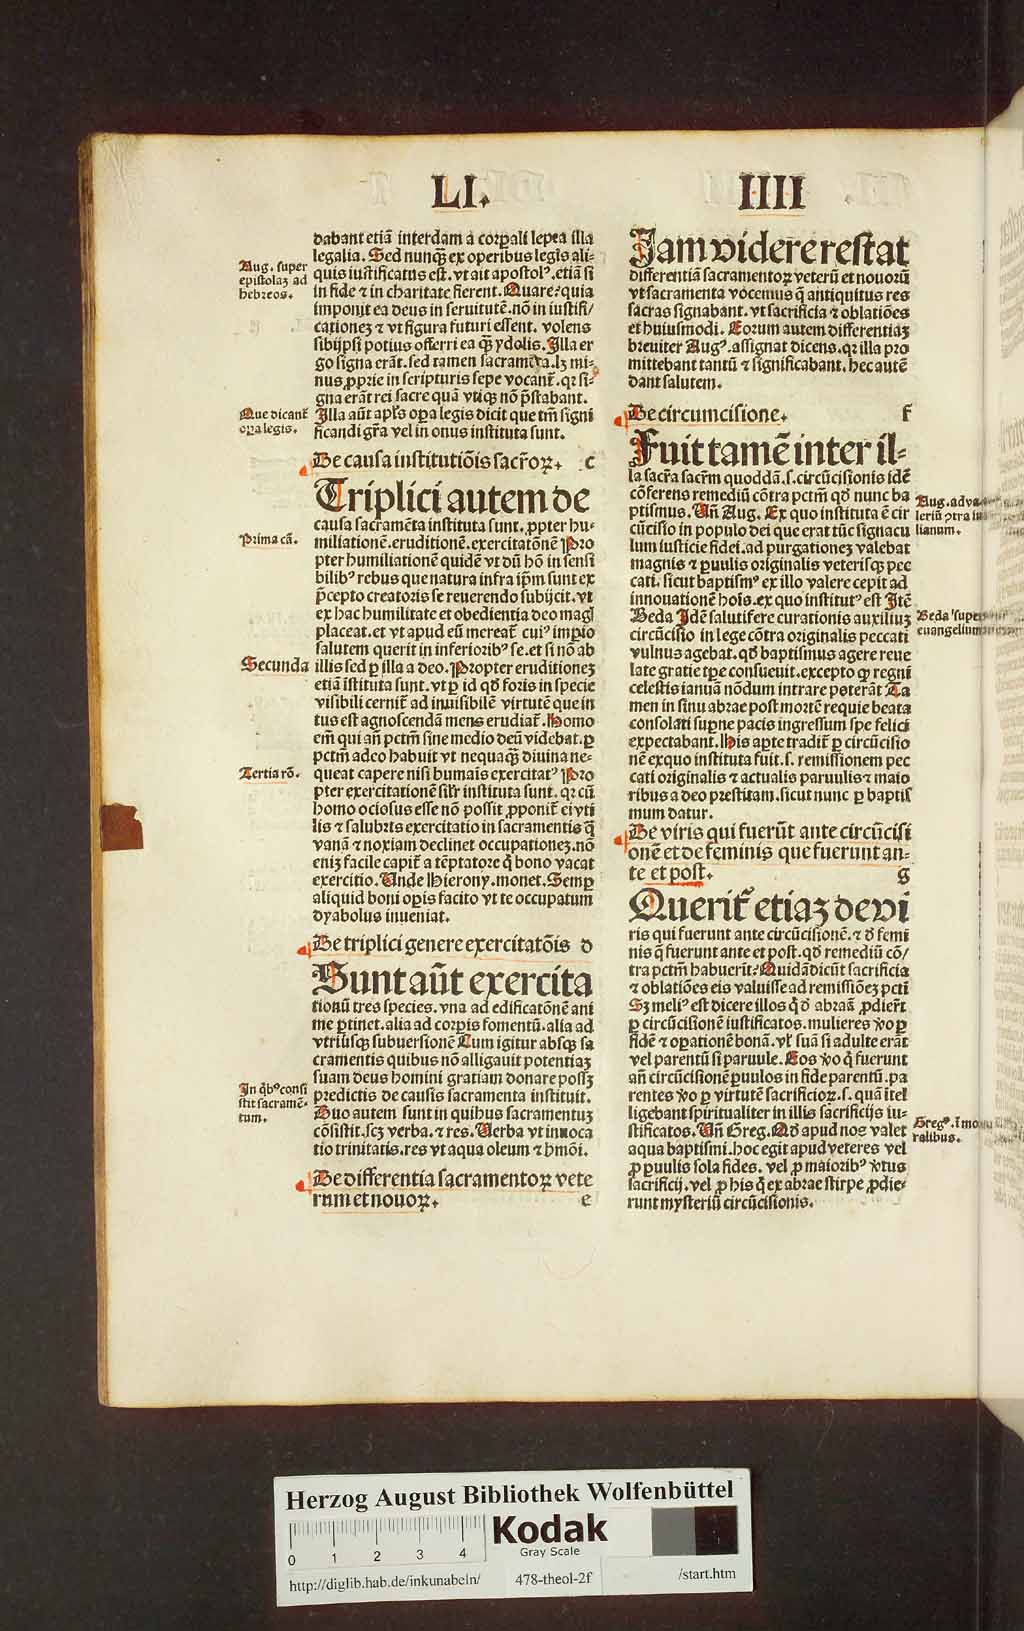 LI. IIII
dabant etiā interdam a corꝑali lepra illa
legalia. Sed nunqͣꝫ ex operibus legis ali⸗
quis iustificatus est. vt ait apostolꝰ. etiā si
in fide ⁊ in charitate fierent. Quare? quia
imponit̃ ea deus in seruitutē. nō in iustifi/
cationeꝫ ⁊ vt figura futuri essent. volens
sibijpsi potius offerri ea qͣꝫ ydolis. Illa er
go signa erāt. sed tamen sacramēta. lꝫ mi⸗
nus ꝓprie in scripturis sepe vocant̃. qꝛ si⸗
gna erāt rei sacre quā vtiqꝫ nō p̄stabant.
Illa aūt apl̃s oꝑa legis dicit que tm̄ signi
ficandi gr̃a vel in onus instituta sunt.
Aug. super
epistolaꝫ ad
hebreos.
Que dicant̃
oꝑa legis.
De causa institutiōis sacr̃oꝝ. c
Triplici autem de
causa sacramēta instituta sunt. ꝓpter hu⸗
miliationē. eruditionē. exercitatōnē Pro
pter humiliationē quidē vt dū hō in sensi
bilibꝰ rebus que natura infra ip̄m sunt ex
p̄cepto creatoris se reuerendo subijcit. vt
ex hac humilitate et obedientia deo magꝭ
placeat. et vt apud eū mereat̃ cuiꝰ imꝑio
salutem querit in inferioribꝰ se. et si nō ab
illis sed ꝑ illa a deo. Propter eruditioneꝫ
etiā īstituta sunt. vt ꝑ id qđ foris in specie
visibili cernit̃ ad inuisibilē virtutē que in
tus est agnoscendā mens erudiat̃. Homo
em̄ qui an̄ pctm̄ sine medio deū videbat. ꝑ
pctm̄ adeo habuit vt nequaqͣꝫ diuina ne⸗
queat capere nisi humais exercitatꝰ Pro
pter exercitationē sil̃r instituta sunt. qꝛ cū
homo ociosus esse nō possit ꝓponit̃ ei vti
lis ⁊ salubris exercitatio in sacramentis q̄
vanā ⁊ noxiam declinet occupationeꝫ. nō
eniꝫ facile capit̃ a tēptatore q̇ bono vacat
exercitio. Unde Hierony. monet. Semꝑ
aliquid boni oꝑis facito vt te occupatum
dyabolus inueniat.
Prima cā.
Secunda
Tertia rō.
De triplici genere exercitatōis d
Sunt aūt exercita
tionū tres species. vna ad edificatōnē ani
me ꝑtinet. alia ad corꝑis fomentū. alia ad
vtriusqꝫ subuersionē Cum igitur absqꝫ sa
cramentis quibus nō alligauit potentiaꝫ
suam deus homini gratiam donare possꝫ
predictis de causis sacramenta instituit.
Duo autem sunt in quibus sacramentuꝫ
cōsistit. scꝫ verba. ⁊ res. Verba vt inuoca
tio trinitatis. res vt aqua oleum ⁊ hmōi.
In qͥbꝰ consi
stit sacramē⸗
tum.
De differentia sacramentoꝝ vete
rum et nouoꝝ. e
Jam videre restat
differentiā sacramentoꝝ veterū et nouorū
vt sacramenta vocemus q̄ antiquitus res
sacras signabant. vt sacrificia ⁊ oblatiōes
et huiusmodi. Eorum autem differentiaꝫ
breuiter Augꝰ. assignat dicens. qꝛ illa pro
mittebant tantū ⁊ significabant. hec autē
dant salutem.
De circumcisione. f
Fuit tamē inter il⸗
la sacr̃a sacrm̄ quoddā. s. circūcisionis idē
cōferens remediū cōtra pctm̄ qđ nunc ba
ptismus. Un̄ Aug. Ex quo instituta ē cir
cūcisio in populo dei que erat tūc signacu
lum iusticie fidei. ad purgationeꝫ valebat
magnis ⁊ ꝑuulis originalis veterisqꝫ pec
cati. sicut baptismꝰ ex illo valere cepit ad
innouationē hoīs. ex quo institutꝰ est Itē
Beda Idē salutifere curationis auxiliuꝫ
circūcisio in lege cōtra originalis peccati
vulnus agebat. qđ baptismus agere reue
late gratie tꝑe consueuit. excepto qꝙ regni
celestis ianuā nōdum intrare poterāt Ta
men in sinu abrae post mortē requie beata
consolati suꝑne pacis ingressum spe felici
expectabant. His aꝑte tradit̃ ꝑ circūcisio
nē exquo instituta fuit. s. remissionem pec
cati originalis ⁊ actualis paruulis ⁊ maio
ribus a deo prestitam. sicut nunc ꝑ baptis
mum datur.
Aug. adue
leriū ꝯtra iu
lianum.
Beda super
euangelium
De viris qui fuerūt ante circūcisi
onē et de feminis que fuerunt an⸗
te et post. g
Querit̃ etiaꝫ de vi
ris qui fuerunt ante circūcisionē. ⁊ đ femi
nis q̄ fuerunt ante et post. qđ remediū cō/
tra pctm̄ habuerīt? Quidā dicūt sacrificia
⁊ oblatiōes eis valuisse ad remissiōeꝫ pcti
Sꝫ meliꝰ est dicere illos q̇ đ abraā ꝓdier̄t
ꝑ circūcisionē iustificatos. mulieres v̊o ꝑ
fidē ⁊ oꝑationē bonā. vl̃ suā si adulte erāt
vel parentū si paruule. Eos v̊o q̇ fuerunt
an̄ circūcisionē ꝑuulos in fide parentū. pa
rentes v̊o ꝑ virtutē sacrificioꝝ. s. quā ītel
ligebant spiritualiter in illis sacrificijs iu⸗
stificatos. Un̄ Greg. Qđ apud nos valet
aqua baptismi. hoc egit apud veteres vel
ꝓ ꝑuulis sola fides. vel ꝓ maioribꝰ v̓tus
sacrificij. vel ꝓ his q̇ ex abrae stirpe ꝓdie⸗
runt mysteriū circūcisionis.
Gregꝰ. I mo
ralibus.
Herzog August Bibliothek Wolfenbüttel
0 1 2 3 4
Kodak
Gray Scale
http://diglib.hab.de/inkunabeln/ 478-theol-2f /start.htm